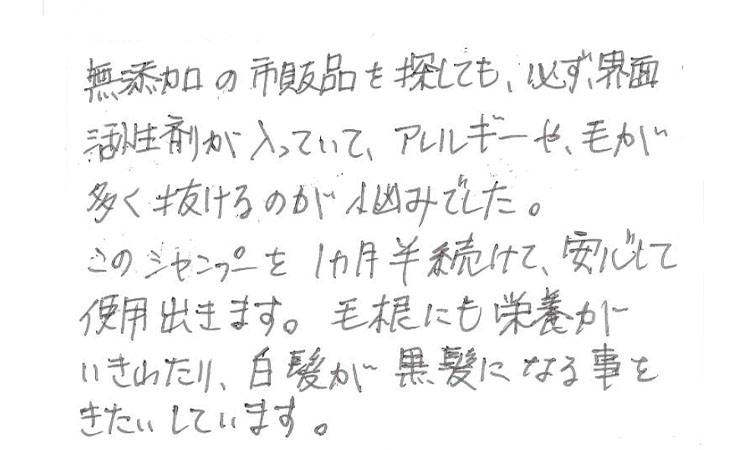 無添加の市販品を探しても、必ず、界面
活性剤が入っていて、アレルギーや、毛が
多く抜けるのが悩みでした。
このシャンプーを1カ月半続けて、安心して
使用出きます。毛根にも栄養が
いきわたり、白髪が黒髪になる事を
きたいしています。